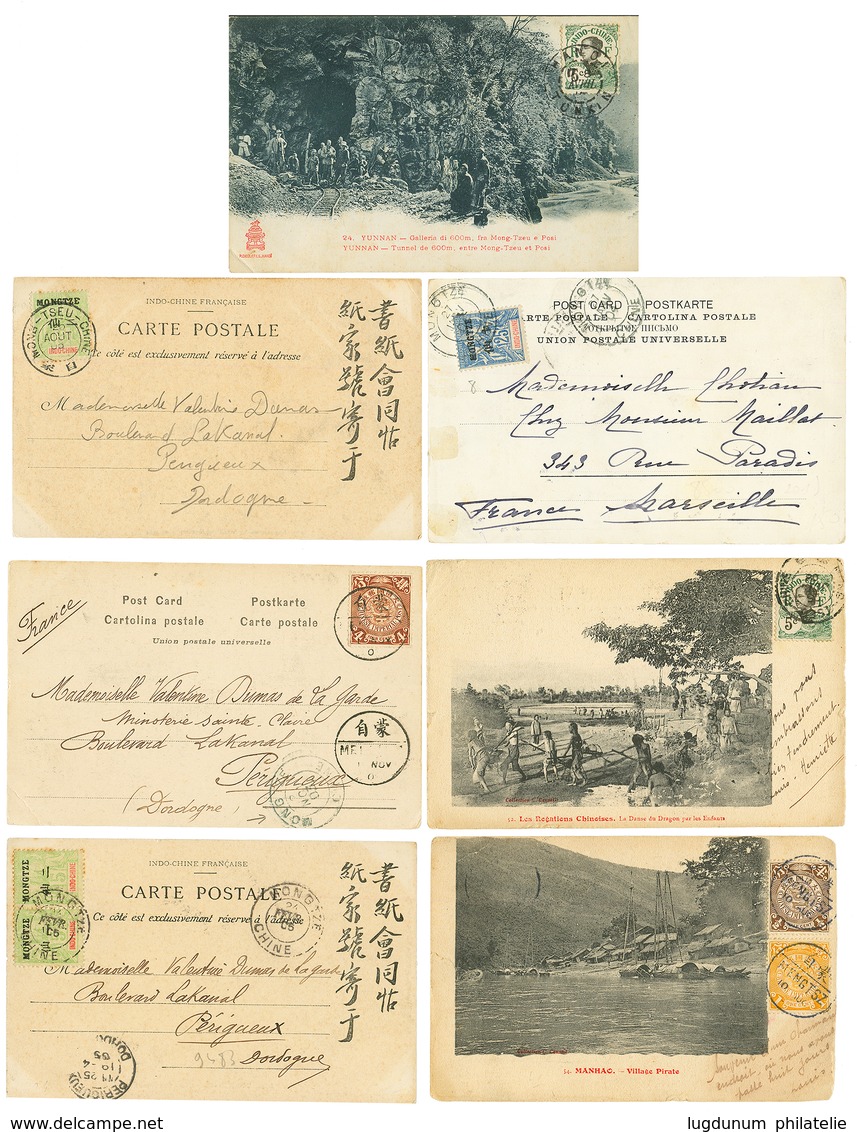 INDO-CHINE
TONKIN
24. YUNNAN — Galleria di 600m, fra Mong-Tzeu e Posi
YUNNAN — Tunnel de 600m, entre Mong-Tzeu et Posi
MONGTZE
MONG-TSEU-CHINE
AOUT
INDO-CHINE FRANÇAISE
CARTE POSTALE
Ce côté est exclusivement réservé à l'adresse
書紙會同帖
紙家號寄于
Mademoiselle Valentine Dumas
Boulevard LaKanal.
Périgueux
Dordogne -
MONGTZE
MONGTZE
25
POST CARD POSTKARTE
CARTE POSTALE CARTOLINA POSTALE
ОТКРЫТОЕ ПИСЬМО
UNION POSTALE UNIVERSELLE
8
Mademoiselle
Chez Monsieur Maillat
343 Rue Paradis
France Marseille
France
Post Card Postkarte
Cartolina postale Carte postale
Union postale universelle
Mademoiselle Valentine Dumas de La Garde
Minoterie Sainte-Claire
Boulevard LaKanal
Périgueux
(Dordogne)
蒙自
NOV
MONG
5c
Collection
52. Les Rogations Chinoises. La Danse du Dragon par les Enfants
vous
embrassons
tendrement
Henriette
MONGTZE
MONGTZE
MONGTZE
FEVR.
05
CHINE
INDO-CHINE FRANÇAISE
CARTE POSTALE
Ce côté est exclusivement réservé à l'adresse
MONGTZE
24
FEVR.
05
CHINE
書紙會同帖
紙家號寄于
Mademoiselle Valentine Dumas de la garde
Boulevard LaKanal
Périgueux
Dordogne
9483
PERIGUEUX
DORDOGNE
MENGTSZ
54. MANHAO. — Village Pirate
Souvenir d'un charmant
endroit, où nous avons
passé huit jours
lugdunum philatelie